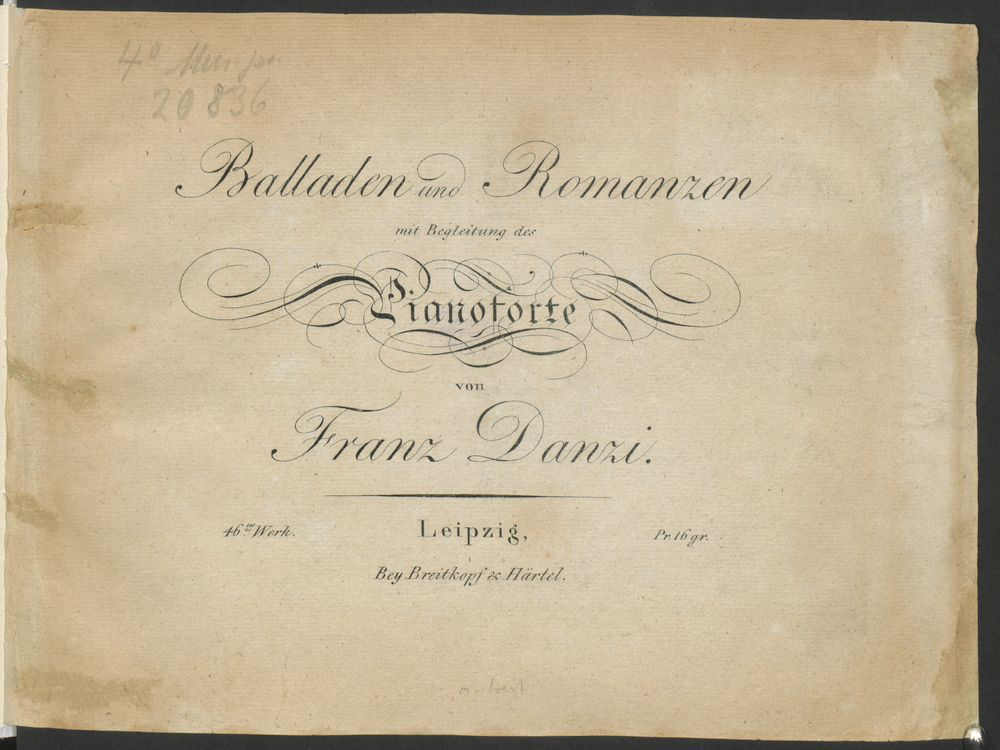 4° Mus. pr.
20 836
Balladen und Romanzen
mit Begleitung des
Pianoforte
von
Franz Danzi.
46tes Werk.
Leipzig,
Pr. 16 gr.
Bey Breitkopf & Härtel.